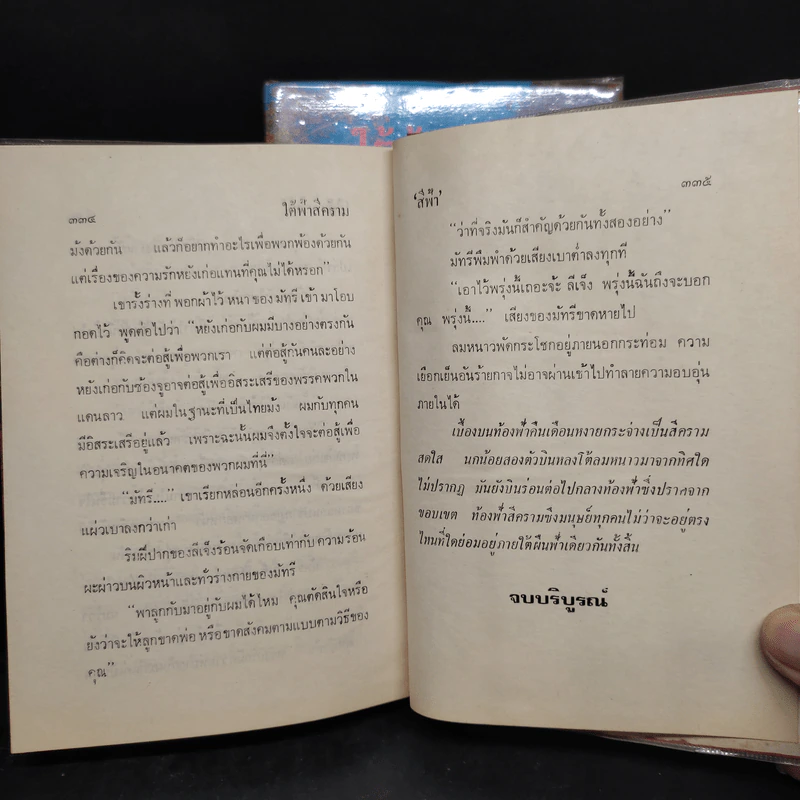 ๓๓๔
ใต้ฟ้าสีคราม
มังด้วยกัน แล้วก็อยากทำอะไรเพื่อพวกพ้องด้วยกัน
แต่เรื่องของความรักหยังเก่อแทนที่คุณไม่ได้หรอก”
เขารั้งร่างที่ พอกผ้าไว้ หนา ของ มัทรี เข้า มาโอบ
กอดไว้ พูดต่อไปว่า “หยังเก่อกับผมมีบางอย่างตรงกัน
คือต่างก็คิดจะต่อสู้เพื่อพวกเรา แต่ต่อสู้กันคนละอย่าง
หยังเก่อกับซ้องจูอาจต่อสู้เพื่ออิสระเสรีของพรรคพวกใน
แดนลาว แต่ผมในฐานะที่เป็นไทยมัง ผมกับทุกคน
มีอิสระเสรีอยู่แล้ว เพราะฉะนั้นผมจึงตั้งใจจะต่อสู้เพื่อ
ความเจริญในอนาคตของพวกผมที่นี่”
“มัทรี....” เขาเรียกหล่อนอีกครั้งหนึ่ง ด้วยเสียง
แผ่วเบาลงกว่าเก่า
ริมฝีปากของลีเจ็งร้อนจัดเกือบเท่ากับ ความร้อน
ผะผ่าวบนผิวหน้าและทั่วร่างกายของมัทรี
“พาลูกกับมาอยู่กับผมได้ไหม คุณตัดสินใจหรือ
ยังว่าจะให้ลูกขาดพ่อ หรือขาดสังคมตามแบบตามวิธีของ
คุณ”
‘สีฟ้า’
๓๓๕
“ว่าที่จริงมันก็สำคัญด้วยกันทั้งสองอย่าง”
มัทรีพึมพำด้วยเสียงเบาต่ำลงทุกที
“เอาไว้พรุ่งนี้เถอะจ้ะ ลีเจ็ง พรุ่งนี้ฉันถึงจะบอก
คุณ พรุ่งนี้....” เสียงของมัทรีขาดหายไป
ลมหนาวพัดกระโชกอยู่ภายนอกกระท่อม ความ
เยือกเย็นอันร้ายกาจไม่อาจผ่านเข้าไปทำลายความอบอุ่น
ภายในได้
เบื้องบนท้องฟ้าคืนเดือนหงายกระจ่างเป็นสีคราม
สดใส นกน้อยสองตัวบินหลงโต้ลมหนาวมาจากทิศใด
ไม่ปรากฏ มันยังบินร่อนต่อไปกลางท้องฟ้าซึ่งปราศจาก
ขอบเขต ท้องฟ้าสีครามซึ่งมนุษย์ทุกคนไม่ว่าจะอยู่ตรง
ไหนที่ใดย่อมอยู่ภายใต้ผืนฟ้าเดียวกันทั้งสิ้น
จบบริบูรณ์